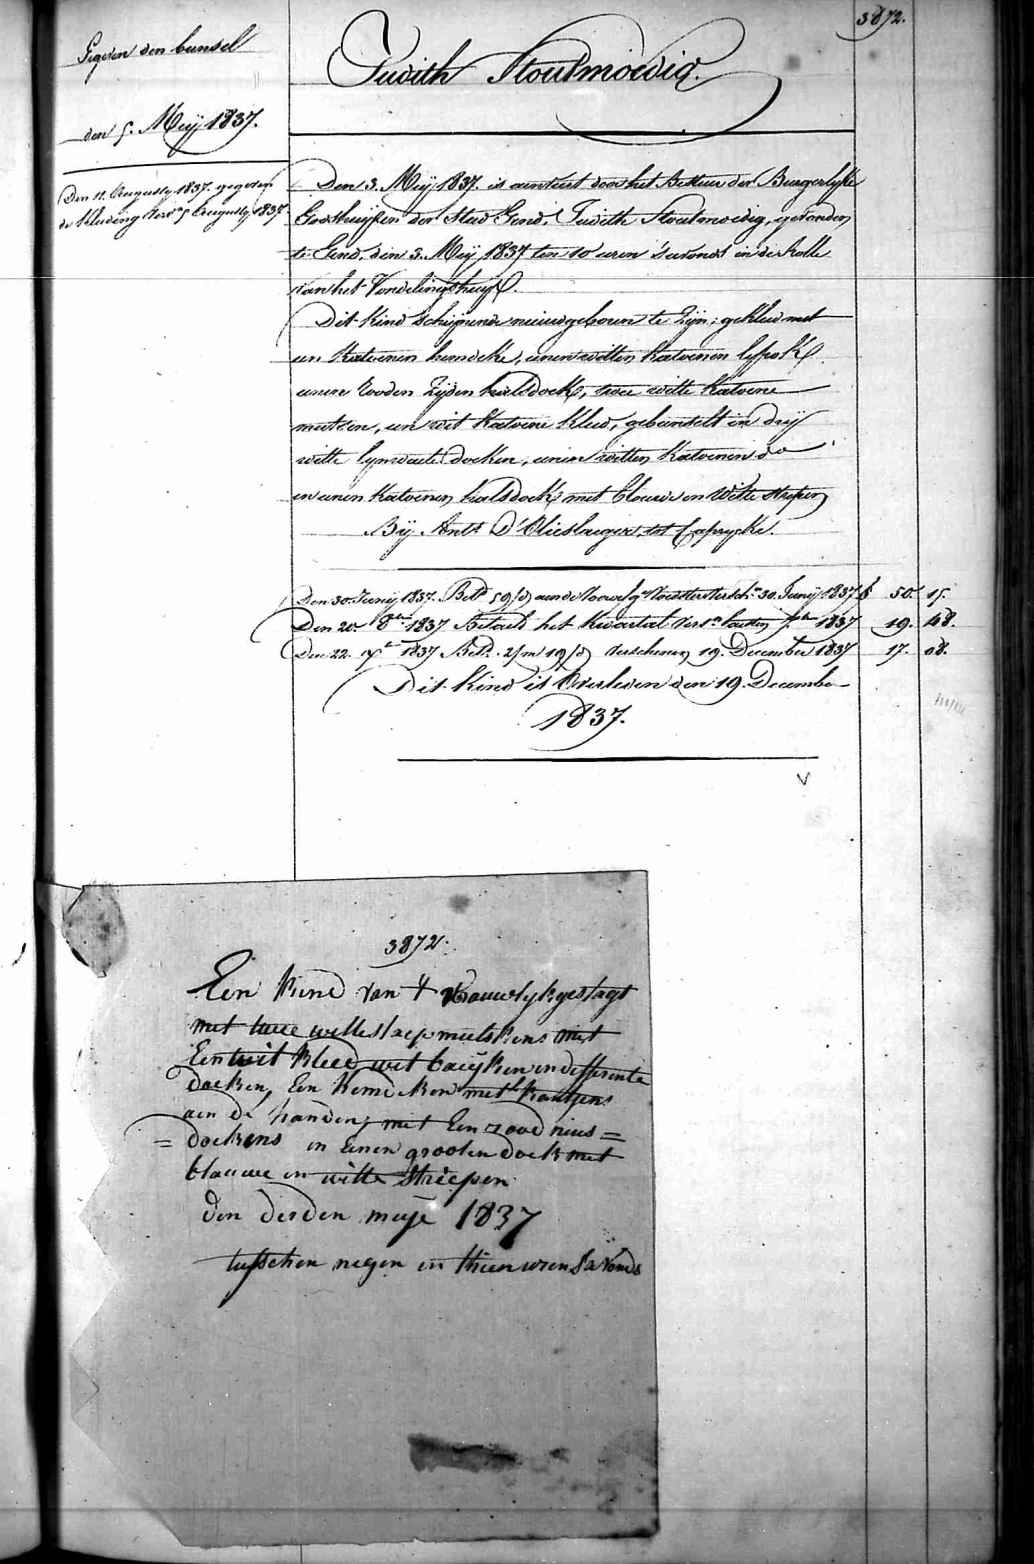 3872.
Gegeven den bunsel
den 5. Meij 1837.
Den 11. Augusty 1837. gegeven
de kleeding Augusty 1837
Judith Stoutmoedig.
Den 3. Meij 1837. is aenveirt door het Bestuur der Burgerlyke
Godshuijsen der Stad Gend, Judith Stoutmoedig, gevonden
te Gend, den 3. Meij 1837 ten 10 uren 's avonds in de kolle
van het Vondelingshuys.
Dit kind schijnende nieuwgeboren te zijn; gekleed met
een katoenen hemdeke, eenen witten katoenen lyfrok
eenen rooden zijden halsdoek, twee witte katoene
mutsen, een wit katoene kleed, gebunselt in drij
witte lynwaete doeken, eenen witten katoenen do
en eenen katoenen halsdoek met blauwe en witte strepen
Bij Ant. D'Olieslaeger, tot Caprycke.
Den 30. Junij 1837. Bet. 59/d aen de 30. Junij 1837 f 50. 15.
Den 20. 8e 1837 Betaeld het kwartael 1837 19. 48.
Den 22. 1837 Bet. 2/m 19/d verschenen 19. December 1837 17. 08.
Dit kind is Overleden den 19. December
1837.
3872.
Een kind van t vrauwlyk geslagt
met twee witte slaepmutskens met
Een wit kleed met baeyken en differente
doeken, Een hemdeken met kantjens
aen de handen, met Een rood neus=
=doekens en Eenen grooten doek met
blauwe en witte striepen
den derden meije 1837
tusschen negen en thien uren s avonds